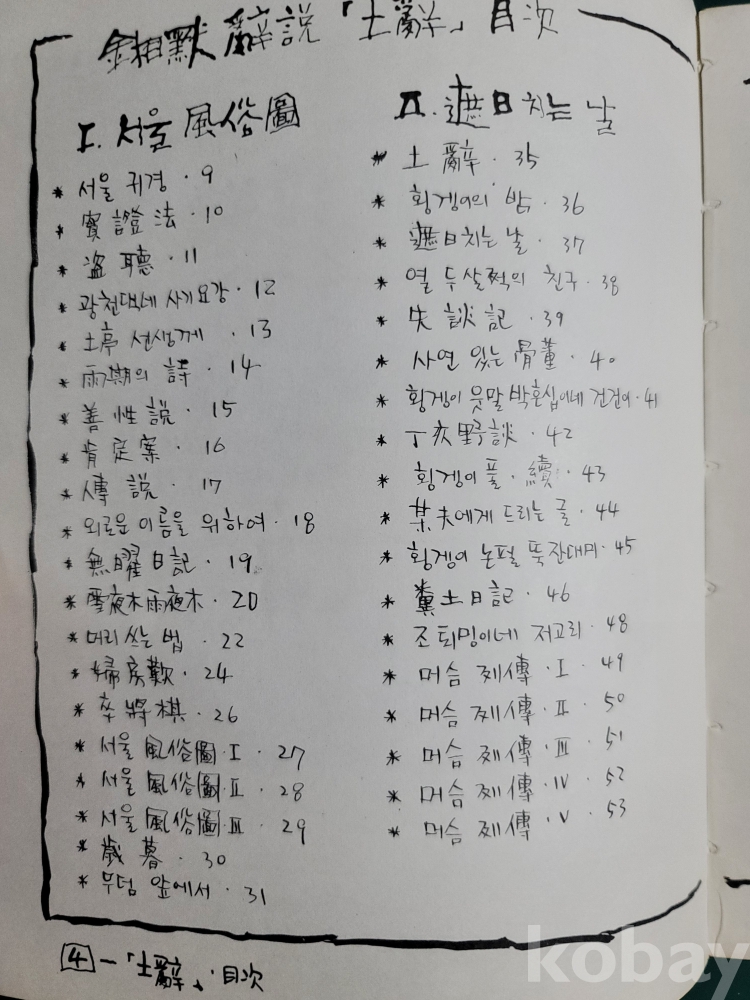 金相默 辭說「土辭」目次
I. 서울 風俗圖
* 서울 귀경 · 9
* 實證法 · 10
* 盜聽 · 11
* 광천댁네 사기요강 · 12
* 土亭 선생께 · 13
* 雨期의 詩 · 14
* 善性說 · 15
* 肯定案 · 16
* 傳說 · 17
* 외로운 이름을 위하여 · 18
* 無曜日記 · 19
* 雪夜木雨夜木 · 20
* 머리 쓰는 법 · 22
* 婦房歎 · 24
* 卒將棋 · 26
* 서울 風俗圖·I · 27
* 서울 風俗圖·II · 28
* 서울 風俗圖·III · 29
* 歲暮 · 30
* 무덤 앞에서 · 31
II. 遮日치는 날
* 土辭 · 35
* 횡겡이의 밤 · 36
* 遮日치는 날 · 37
* 열 두 살쩍의 친구 · 38
* 失談記 · 39
* 사연 있는 骨董 · 40
* 횡겡이 웃말 박혼십이네 건건이 · 41
* 丁亥野談 · 42
* 횡겡이 풀·續 · 43
* 某夫에게 드리는 글 · 44
* 횡겡이 논펄 뚝잔대미 · 45
* 糞土日記 · 46
* 조퇴밍이네 저고리 · 48
* 머슴 쩨傳·I · 49
* 머슴 쩨傳·II · 50
* 머슴 쩨傳·III · 51
* 머슴 쩨傳·IV · 52
* 머슴 쩨傳·V · 53
4 —「土辭」·目次
kobay